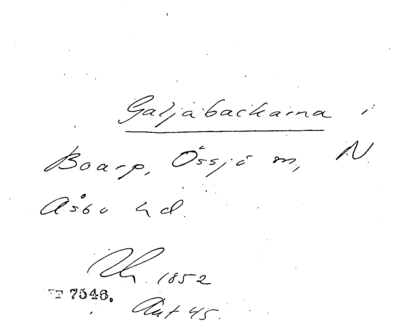 Galjabackarna i
Boarp, Össjö sn, N
Åsbo hd.
1852
7546.
Ant 45.